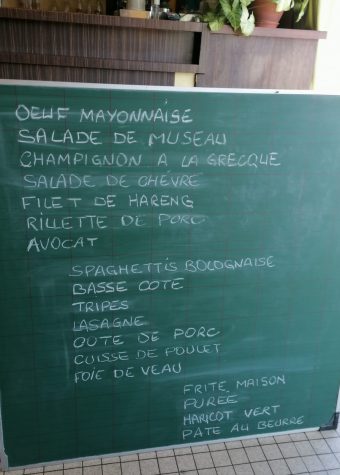 OEUF MAYONNAISE
SALADE DE MUSEAU
CHAMPIGNON A LA GRECQUE
SALADE DE CHÈVRE
FILET DE HARENG
RILLETTE DE PORC
AVOCAT
SPAGHETTIS BOLOGNAISE
BASSE COTE
TRIPES
LASAGNE
OUTE DE PORC
CUISSE DE POULET
FOIE DE VEAU
FRITE MAISON
PUREE
HARICOT VERT
PATE AU BEURRE